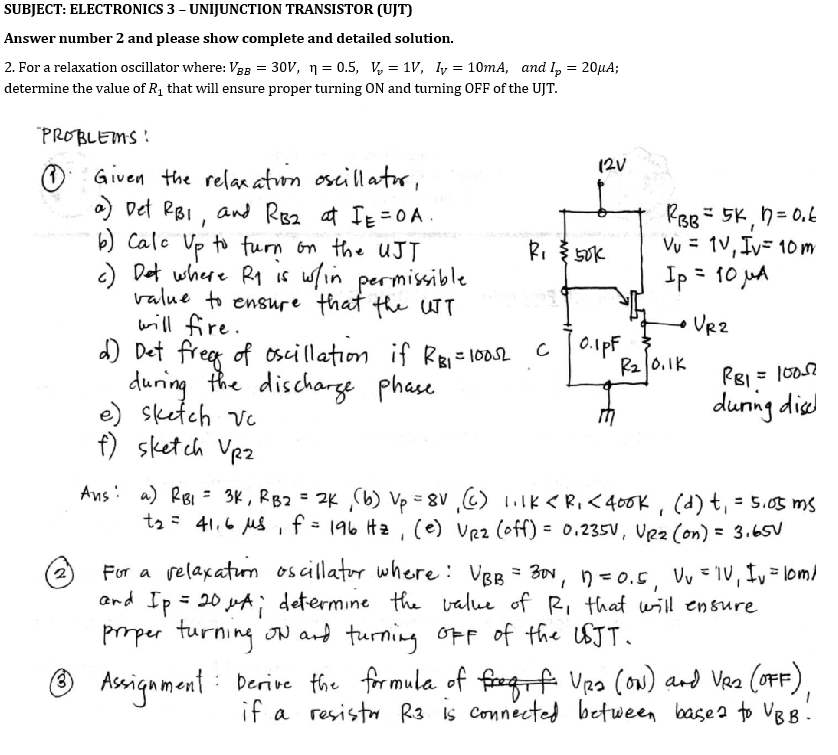 SUBJECT: ELECTRONICS 3 – UNIJUNCTION TRANSISTOR (UJT)
Answer number 2 and please show complete and detailed solution.
2. For a relaxation oscillator where: V_BB = 30V, η = 0.5, V_v = 1V, I_V = 10mA, and I_p = 20μA;
determine the value of R₁ that will ensure proper turning ON and turning OFF of the UJT.
PROBLEMS:
① Given the relaxation oscillator,
a) Det RB1, and RB2 at IE = 0A.
b) Calc Vp to turn on the UJT
c) Det where R1 is w/in permissible
value to ensure that the UJT
will fire.
d) Det freq of oscillation if RB1 = 100Ω
during the discharge phase
e) sketch Vc
f) sketch VR2
12V
R1 50K
C 0.1pF
R2 0.1K
VR2
RBB = 5K, η = 0.6
Vv = 1V, Iv = 10m
Ip = 10 μA
RB1 = 100Ω
during disc
Ans: a) RB1 = 3K, RB2 = 2K, (b) Vp = 8V, (c) 1.1K < R1 < 400K, (d) t1 = 5.05 ms
t2 = 41.6 μs, f = 196 Hz, (e) VR2 (off) = 0.235V, VR2 (on) = 3.65V
② For a relaxation oscillator where: VBB = 30V, η = 0.5, Vv = 1V, Iv = 10m
and Ip = 20 μA; determine the value of R1 that will ensure
proper turning ON and turning OFF of the UJT.
③ Assignment: Derive the formula of freq, f VR2 (ON) and VR2 (OFF),
if a resistor R3 is connected between base2 to VBB.